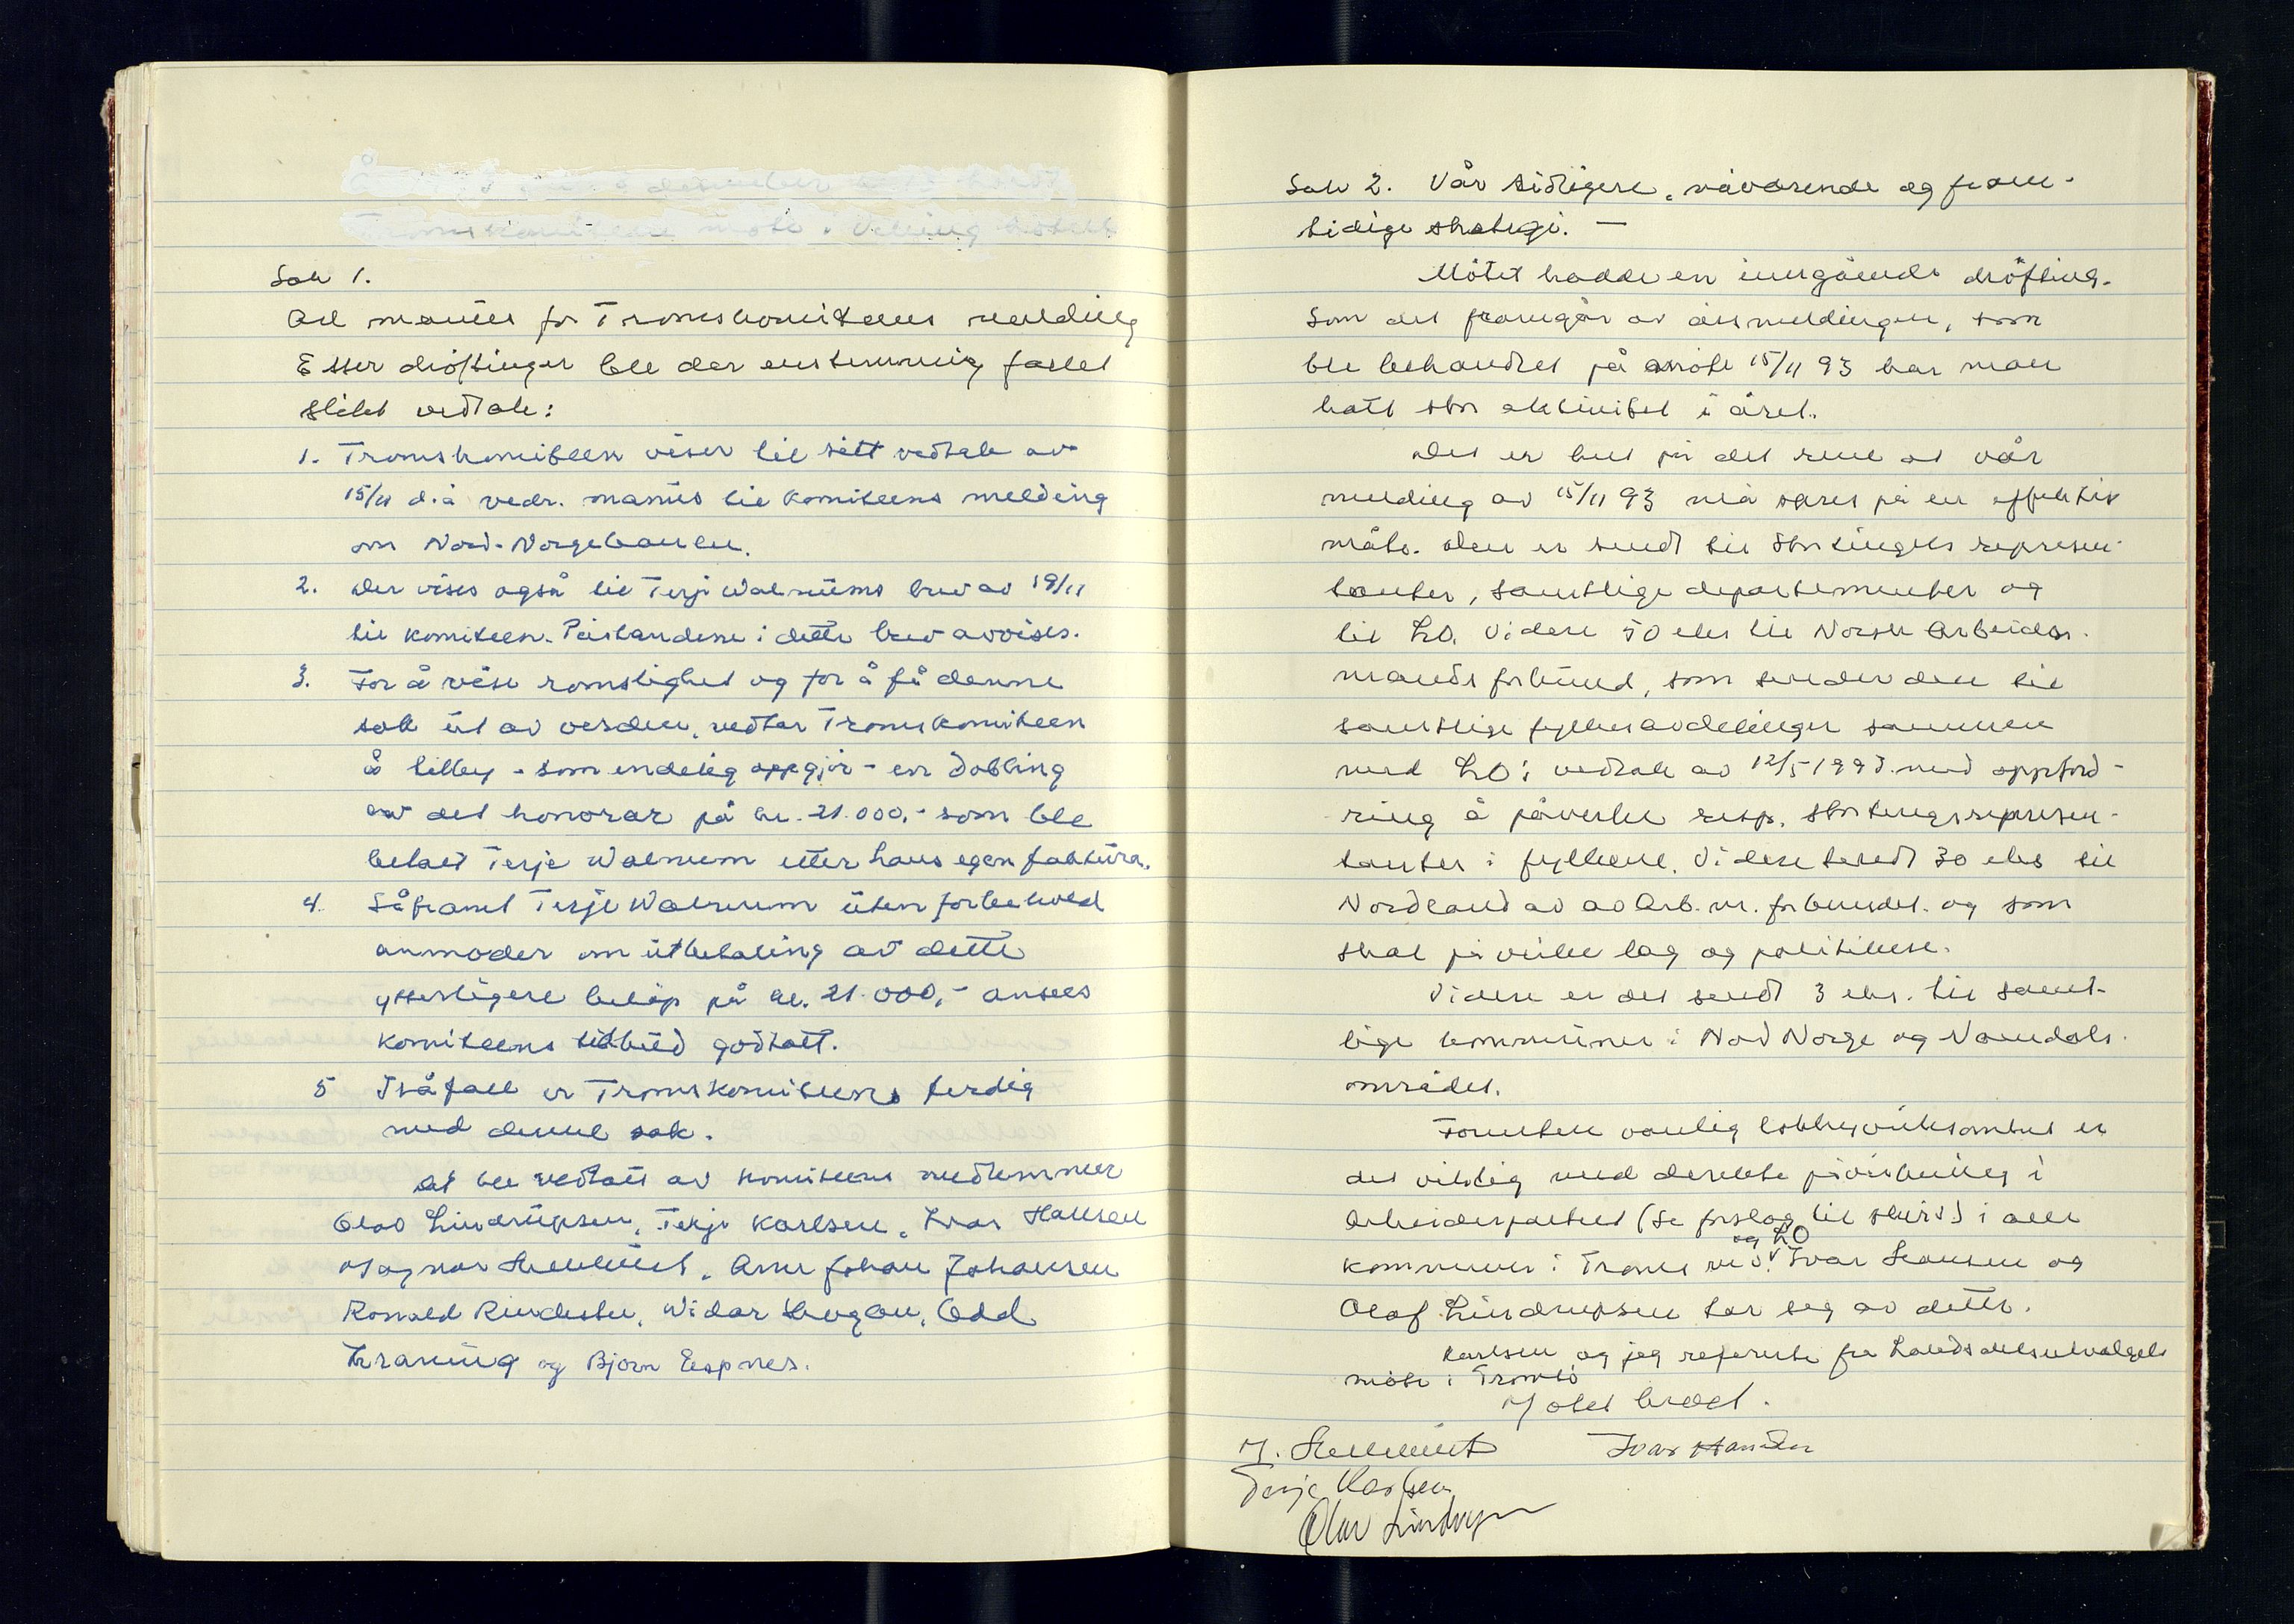 Sak 1.
Ad manus for Tromskomiteens melding
Etter drøftinger ble der enstemmig fattet
slikt vedtak:
1. Tromskomiteen viser til sitt vedtak av
15/11 d.å vedr. manus til komiteens melding
om Nord-Norgebanen.
2. Der vises også til Terje Walnums brev av 19/11
til komiteen. Påstandene i dette brev avvises.
3. For å vise romslighet og for å få denne
sak ut av verden, vedtar Tromskomiteen
å tilby - som endelig oppgjør - en dobling
av det honorar på kr. 21.000,- som ble
betalt Terje Walnum etter hans egen faktura.
4. Såframt Terje Walnum uten forbehold
anmoder om utbetaling av dette
ytterligere beløp på kr. 21.000,- ansees
komiteens tilbud godtatt.
5 Isåfall er Tromskomiteen ferdig
med denne sak.
ble vedtatt av komiteens medlemmer
Olav Lindrupsen, Terje Karlsen, Ivar Hansen
Magnar Hellebust, Arne Johan Johansen
Ronald Rindestu, Widar Skogan, Odd
og Bjørn Espnes.
Sak 2. Vår tidligere, nåværende og fram-
tidige strategi. —
Møtet hadde en inngående drøfting.
Som det framgår av årsmeldingen, som
ble behandlet på møte 15/11 93 har man
hatt stor aktivitet i året.
Det er helt på det rene at vår
melding av 15/11 93 må spres på en effektiv
måte. Den er sendt til Stortingets represen-
tanter, samtlige departementer og
til LO. Videre 50 eks til Norsk Arbeids-
mands forbund, som sender den til
samtlige fylkesavdelinger sammen
med LO's vedtak av 12/5 1993 med oppford-
ring å påvirke resp. stortingsrepresen-
tanter i fylkene. Videre sendt 30 eks til
Nordland av Arb.m. forbundet og som
skal påvirke lag og politikere.
Videre er det sendt 3 eks. til samt-
lige kommuner i Nord Norge og Namdals-
området.
Foruten vanlig lobbyvirksomhet er
det viktig med direkte påvirkning i
Arbeiderpartiet (se forslag til skriv) i alle
og LO
kommuner i Troms ved. Ivar Hansen og
Olaf Lindrupsen tar seg av dette.
Karlsen og jeg referente fra Landsdelsutvalgets
møte i Tromsø
Møtet hevet.
M. Hellebust Ivar Hansen
Terje Karlsen
Olav Lindrupsen